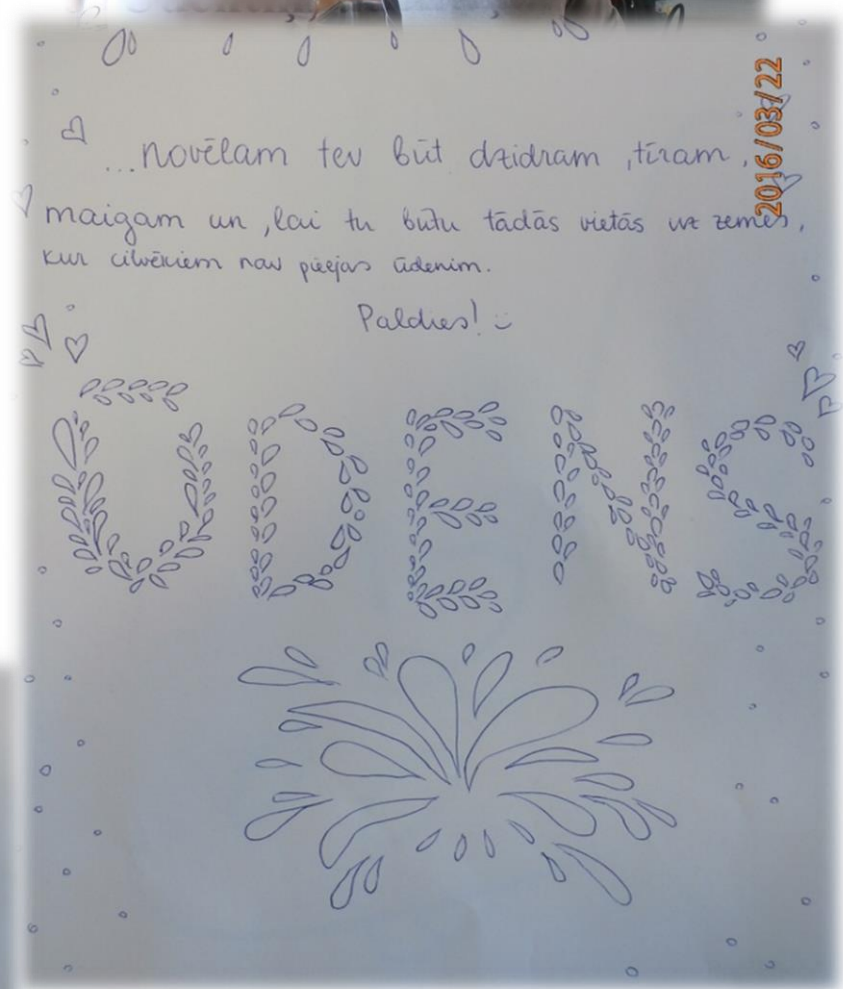 ...novēlam tev būt dzidram, tīram,
maigam un, lai tu būtu tādās vietās uz zemes,
kur cilvēkiem nav pieejas ūdenim.
Paldies! :)
ŪDENS
2016/03/22